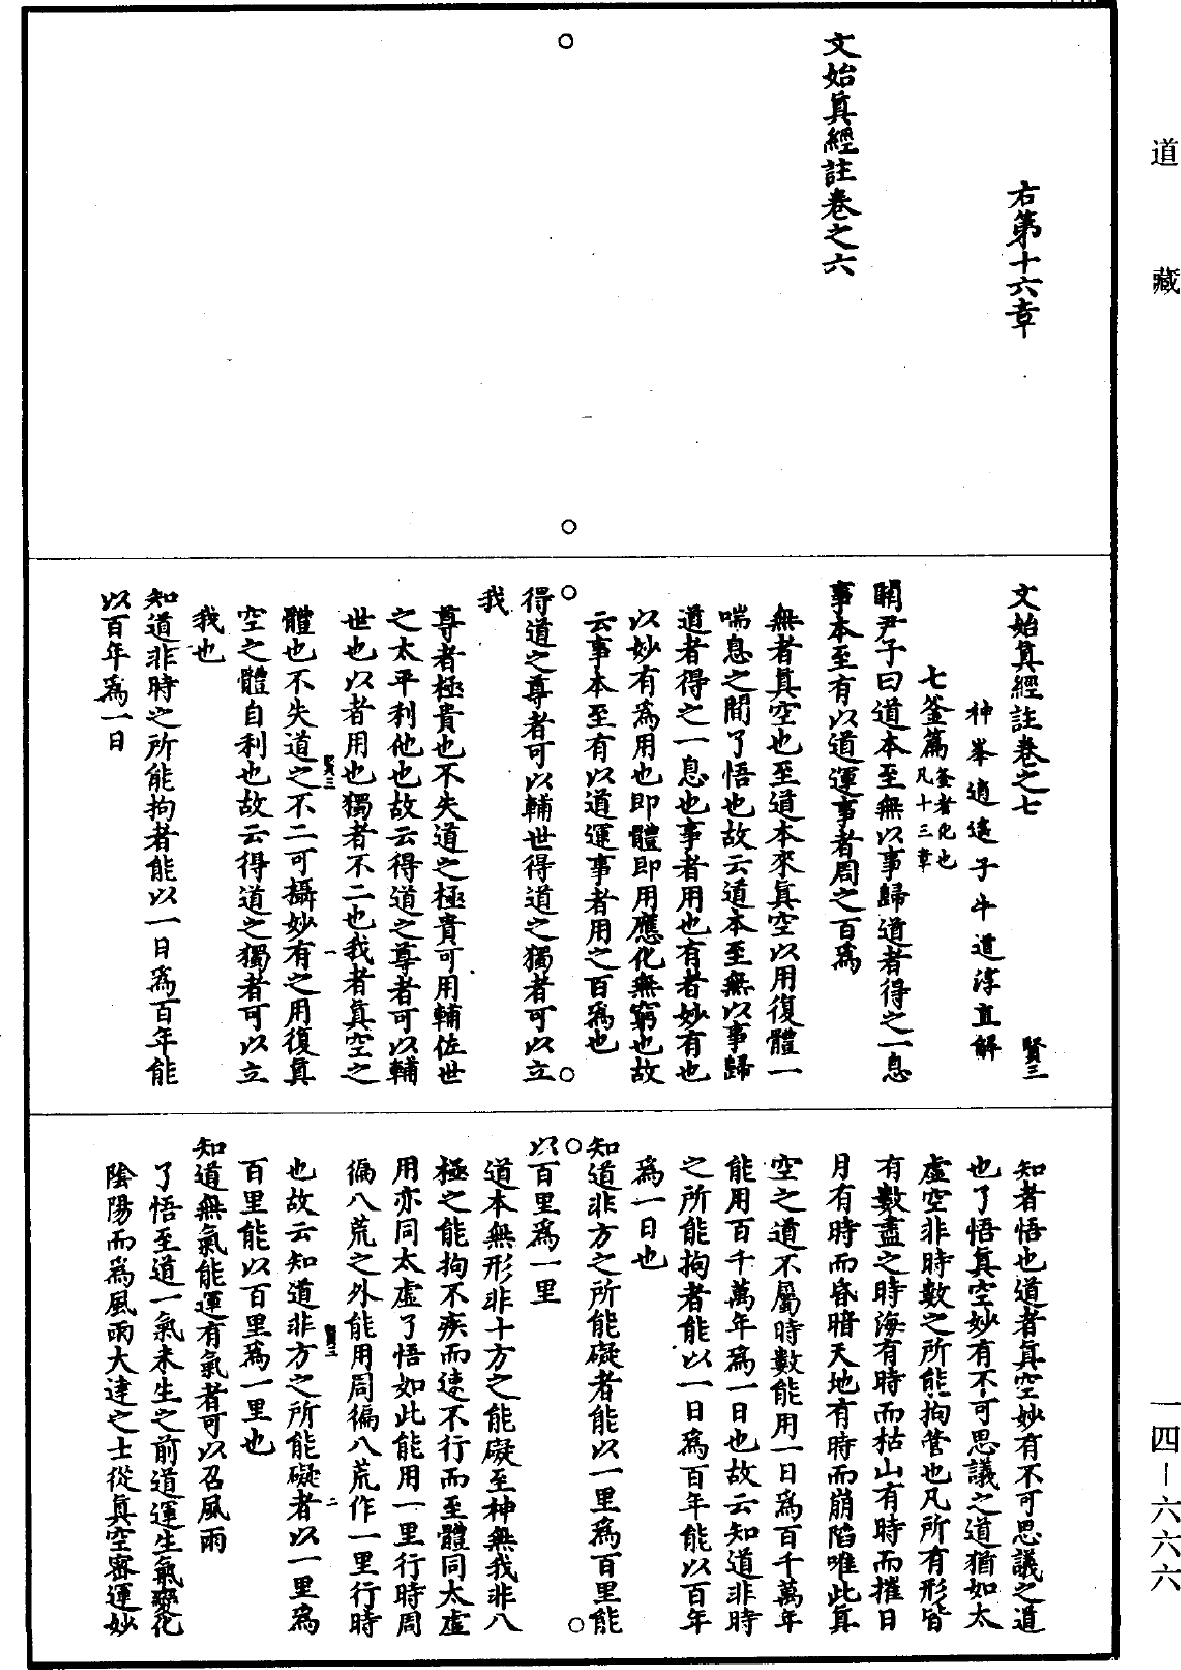 道藏
右第十六章
文始真經註卷之六
文始真經註卷之七
賢三
神峯逍遙子牛道淳直解
七釜篇釜者化也凡十三章
關尹子曰道本至無以事歸道者得之一息
事本至有以道運事者周之百爲
無者真空也至道本來真空以用復體一
喘息之間了悟也故云道本至無以事歸
道者得之一息也事者用也有者妙有也
以妙有爲用也即體即用應化無窮也故
云事本至有以道運事者用之百爲也
得道之尊者可以輔世得道之獨者可以立
我
尊者極貴也不失道之極貴可用輔佐世
之太平利他也故云得道之尊者可以輔
世也以者用也獨者不二也我者真空之
賢三
一
體也不失道之不二可攝妙有之用復真
空之體自利也故云得道之獨者可以立
我也
知道非時之所能拘者能以一日爲百年能
以百年爲一日
知者悟也道者真空妙有不可思議之道
也了悟真空妙有不可思議之道猶如太
虛空非時數之所能拘管也凡所有形皆
有數盡之時海有時而枯山有時而摧日
月有時而昏暗天地有時而崩陷唯此真
空之道不屬時數能用一日爲百千萬年
能用百千萬年爲一日也故云知道非時
之所能拘者能以一日爲百年能以百年
爲一日也
知道非方之所能礙者能以一里爲百里能
以百里爲一里
道本無形非十方之能礙至神無我非八
極之能拘不疾而速不行而至體同太虛
用亦同太虛了悟如此能用一里行時周
徧八荒之外能用周徧八荒作一里行時
賢三
二
也故云知道非方之所能礙者以一里爲
百里能以百里爲一里也
知道無氣能運有氣者可以召風雨
了悟至道一氣未生之前道運生氣變化
陰陽而爲風雨大達之士從真空密運妙
一四－六六六